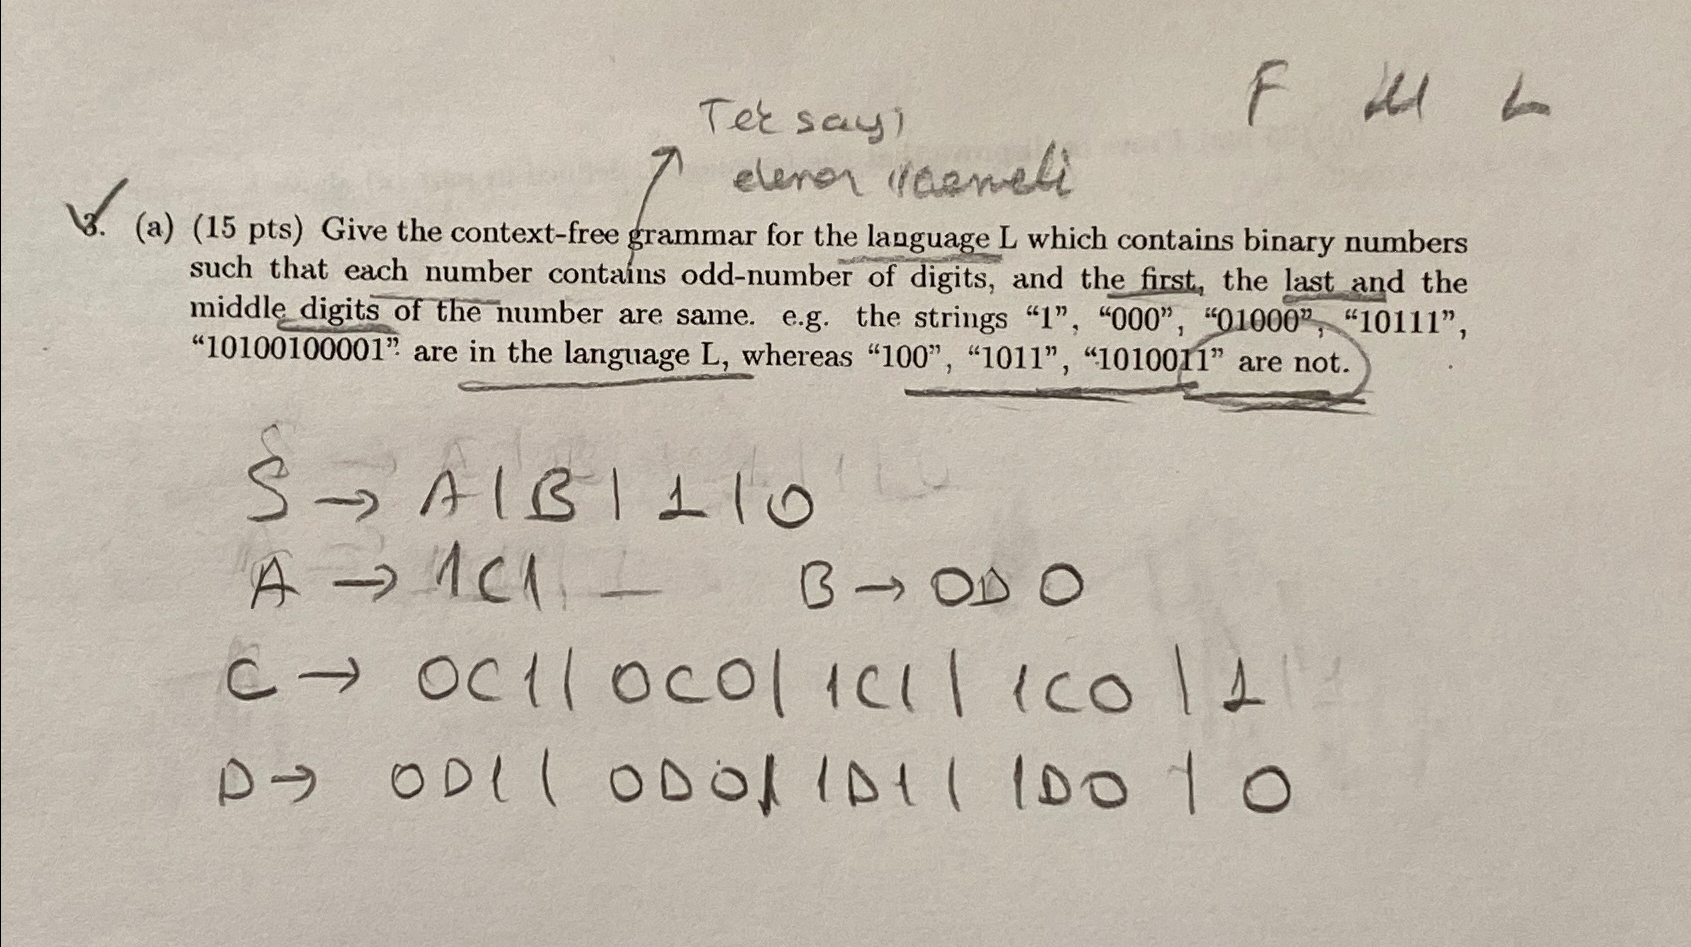 F M L
Tek sayı
eleman içermeli
3. (a) (15 pts) Give the context-free grammar for the language L which contains binary numbers
such that each number contains odd-number of digits, and the first, the last and the
middle digits of the number are same. e.g. the strings “1”, “000”, “01000”, “10111”,
“10100100001” are in the language L, whereas “100”, “1011”, “1010011” are not.
S → A | B | 1 | 0
A → 1C1 B → 0D0
C → 0C1 | 0C0 | 1C1 | 1C0 | 1
D → 0D1 | 0D0 | 1D1 | 1D0 | 0